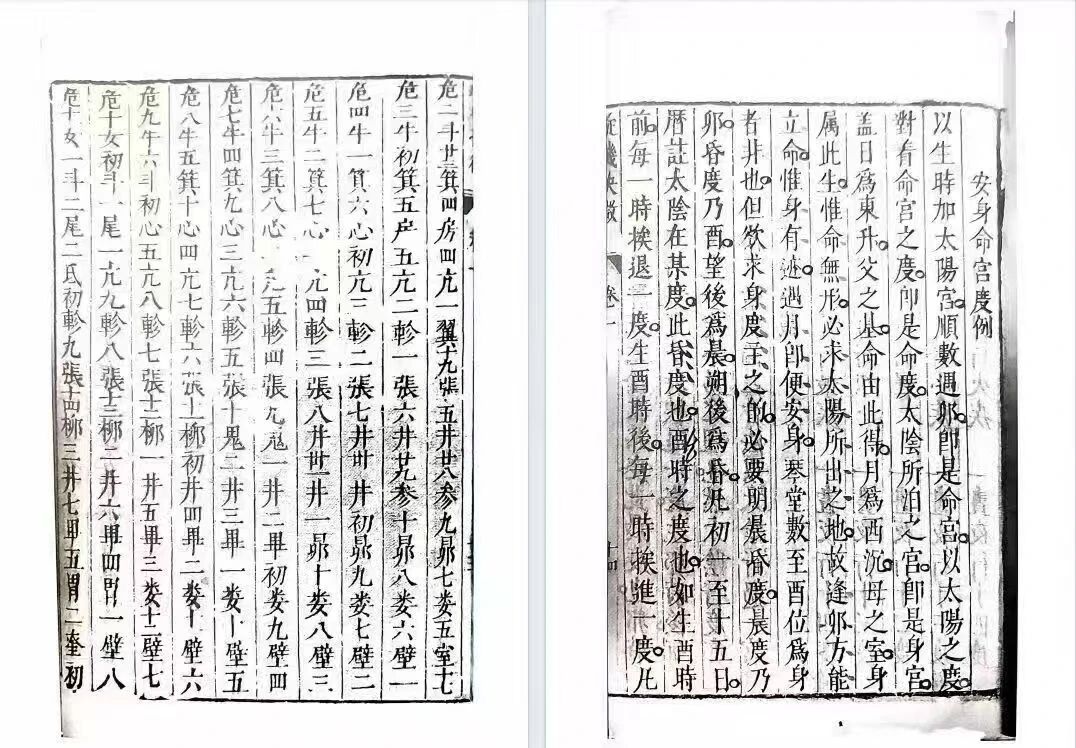 安身命宮度例
以生時加太陽宮。順數遇卯。卽是命宮。以太陽之度。
對看命宮之度。卽是命度。太陰所泊之宮。卽是身宮。
盖日爲東升。父之基。命由此得。月爲西沉。母之室。身
属此生。惟命無形。必求太陽所出之地。故逢卯方能
立命。惟身有迹。遇月卽便安身。琴堂數至酉位爲身
者非也。但欲求身度主之的。必要明晨昏度。晨度乃
卯。昏度乃酉。望後爲晨。朔後爲昏。凡初一至十五日。
曆註太陰在某度。此昏度也。酉時之度也。如生酉時
前。每一時挨退一度。生酉時後。每一時挨進一度。凡
卷一 十四
危二斗廿三箕四房四亢一翼十九張五井廿八参九昴七娄五室七
危三牛初箕五房五亢二軫一張六井廿九参十昴八娄六壁一
危四牛一箕六心初亢三軫二張七井卅井初昴九娄七壁二
危五牛二箕七心一亢四軫三張八井卅一井一昴十娄八壁三
危六牛三箕八心亢五軫四張九鬼一井二畢初娄九壁四
危七牛四箕九心三亢六軫五張十鬼二井三畢一娄十壁五
危八牛五箕十心四亢七軫六張十一柳初井四畢二娄十一壁六
危九牛六斗初心五亢八軫七張十二柳一井五畢三娄十二壁七
危十女初斗一尾一亢九軫八張十三柳二井六畢四胃一壁八
危十女一斗二尾二氐初軫九張十四柳三井七畢五胃二奎初